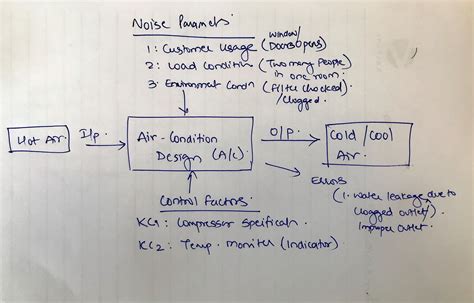 Noise Parameters
1: Customer Usage (window/
Doors opens)
2: Load Condition (Two many people
in one room.
3: Environment Condn (Filter chocked)
/clogged.
Hot Air.
I/p.
Air-Condition
Design (A/c).
O/p.
Cold/Cool
Air.
Errors
(1. water leakage due to
clogged outlet/
Improper outlet.
Control Factors
KC1: Compressor Specificatn
KC2: Temp. moniter (Indicator)